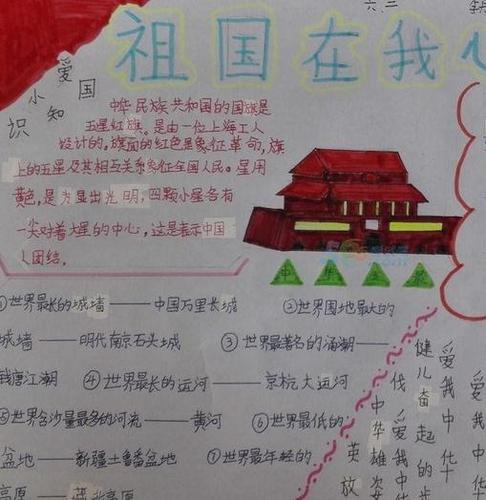 六.三
祖国在我
爱国
小知识
中华民族共和国的国旗是
五星红旗。是由一位上海工人
设计的。旗面的红色象征革命,旗
上的五星及其相互关系象征全国人民。星用
黄色,是为显出光明,四颗小星各有
一尖对着大星的中心,这是表示中国
人团结。
①世界最长的城墙——中国万里长城
②世界围地最大的
城墙——明代南京石头城
③世界最著名的涌潮——
钱唐江潮
④世界最长的运河——京杭大运河
⑤世界含沙量最多的河流——黄河
⑥世界最低的
盆地——新疆土鲁番盆地
⑦世界最年轻的
高原
爱我中华
健儿奋起的步
伐爱我中
中华雄姿
英放